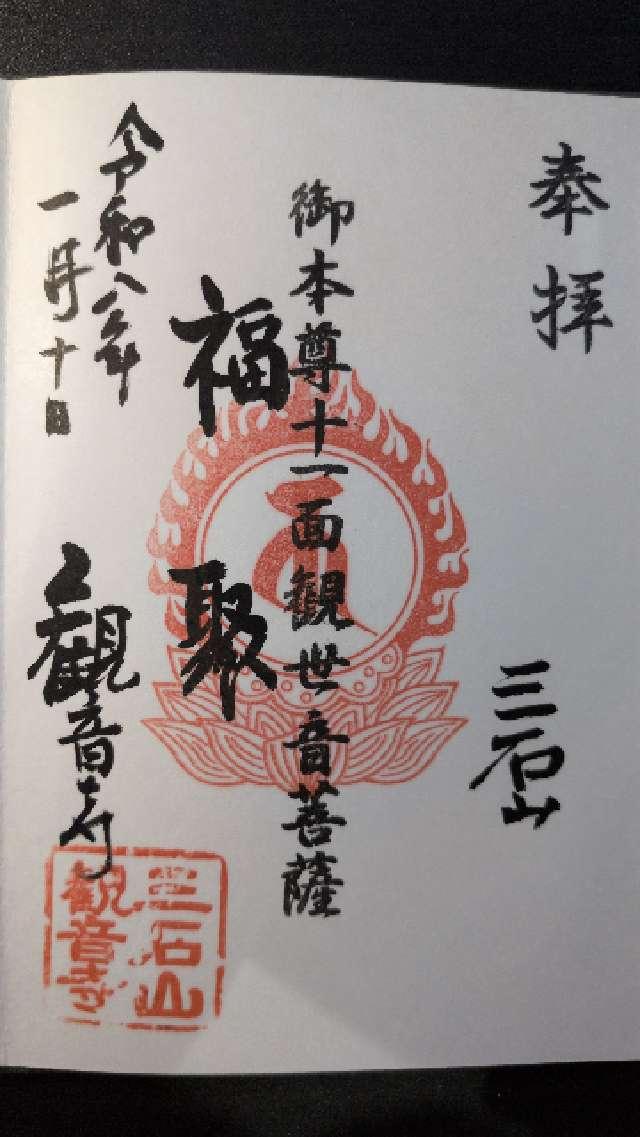 奉拝
三石山
御本尊十一面観世音菩薩
福聚
令和八年
一月十日
観音寺
三石山
観音寺